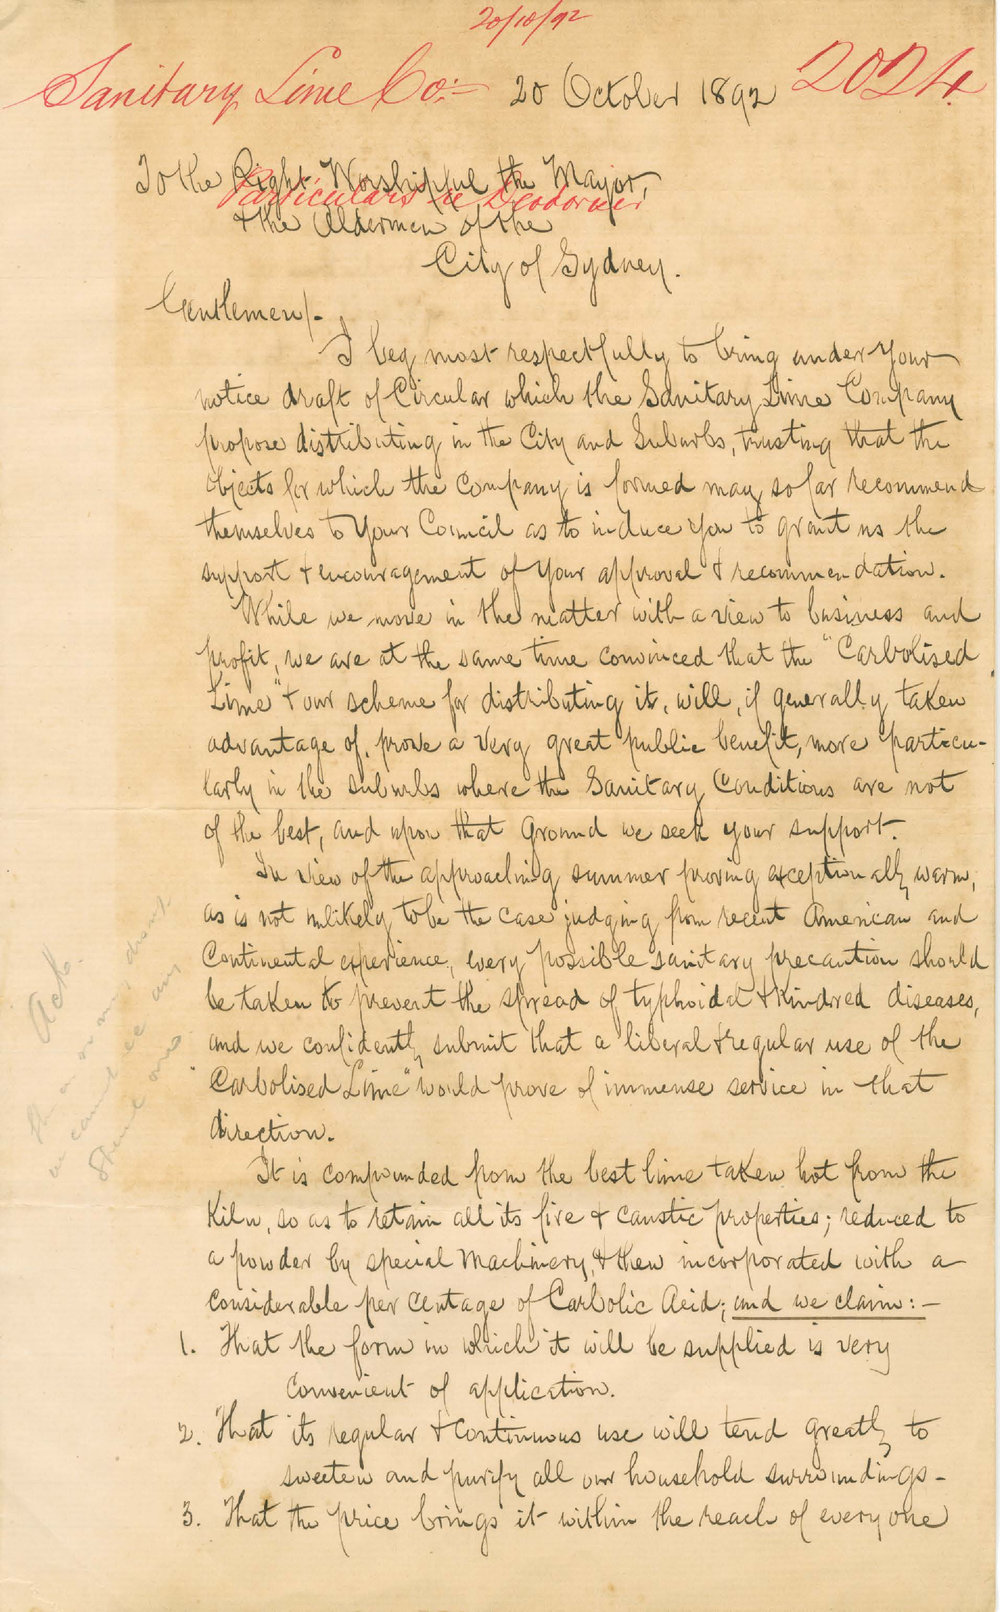 20/10/92
Sanitary Lime Co:- 20 October 1892 2024
To the Right Worshipful the Mayor,
Particulars re Deodoriser
& the Aldermen of the
City of Sydney.
Gentlemen/-
I beg most respectfully to bring under your
notice draft of Circular which the Sanitary Lime Company
propose distributing in the City and Suburbs, trusting that the
objects for which the Company is formed may so far recommend
themselves to Your Council as to induce You to grant us the
support & encouragement of your approval & recommendation.
While we move in the matter with a view to business and
profit, we are at the same time convinced that the "Carbolised
Lime" & our scheme for distributing it, will, if generally taken
advantage of, prove a very great public benefit, more particu-
larly in the suburbs where the Sanitary Conditions are not
of the best, and upon that ground we seek your support.
In view of the approaching summer proving exceptionally warm,
as is not unlikely to be the case judging from recent American and
Continental experience, every possible sanitary precaution should
be taken to prevent the spread of typhoidal & kindred diseases,
and we confidently submit that a liberal & regular use of the
"Carbolised Lime" would prove of immense service in that
direction.
It is compounded from the best lime taken hot from the
Kiln, so as to retain all its fire & caustic properties; reduced to
a powder by special Machinery, & then incorporated with a
considerable per centage of Carbolic Acid; and we claim:-
1. That the form in which it will be supplied is very
convenient of application.
2. That its regular & continuous use will tend greatly to
sweeten and purify all our household surroundings-
3. That the price brings it within the reach of everyone
Ack.